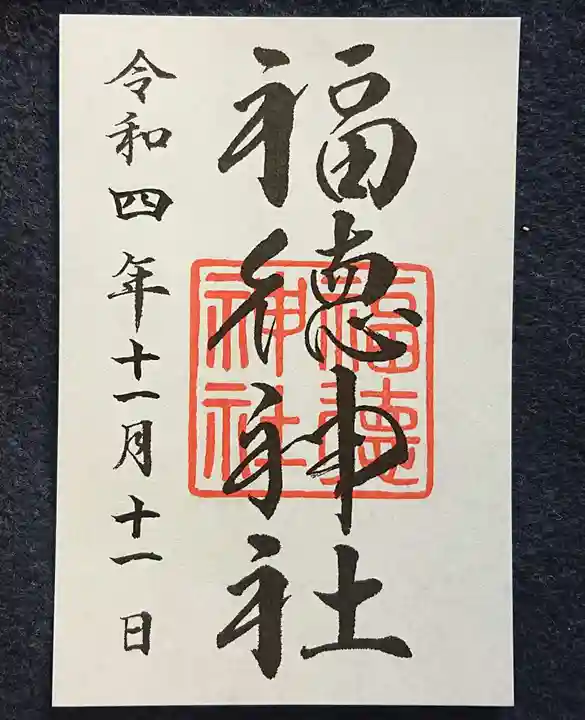 福徳神社
福徳神社
令和四年十一月十一日